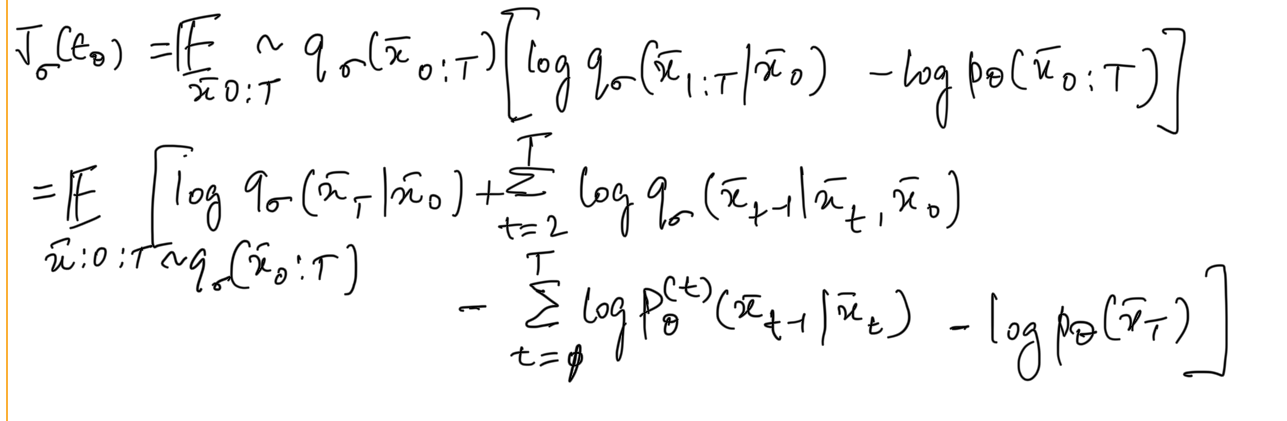 J_σ(t_θ) = 𝔼_{x̄ 0:T} ~ q_σ(x̄_{0:T}) [log q_σ(x̄_{1:T}|x̄_0) - log p_θ(x̄_{0:T})]
= 𝔼_{x̄:0:T ~ q_σ(x̄_0:T)} [log q_σ(x̄_T|x̄_0) + Σ_{t=2}^{T} log q_σ(x̄_{t-1}|x̄_t, x̄_0)
- Σ_{t=1}^{T} log p_θ^{(t)}(x̄_{t-1}|x̄_t) - log p_θ(x̄_T)]